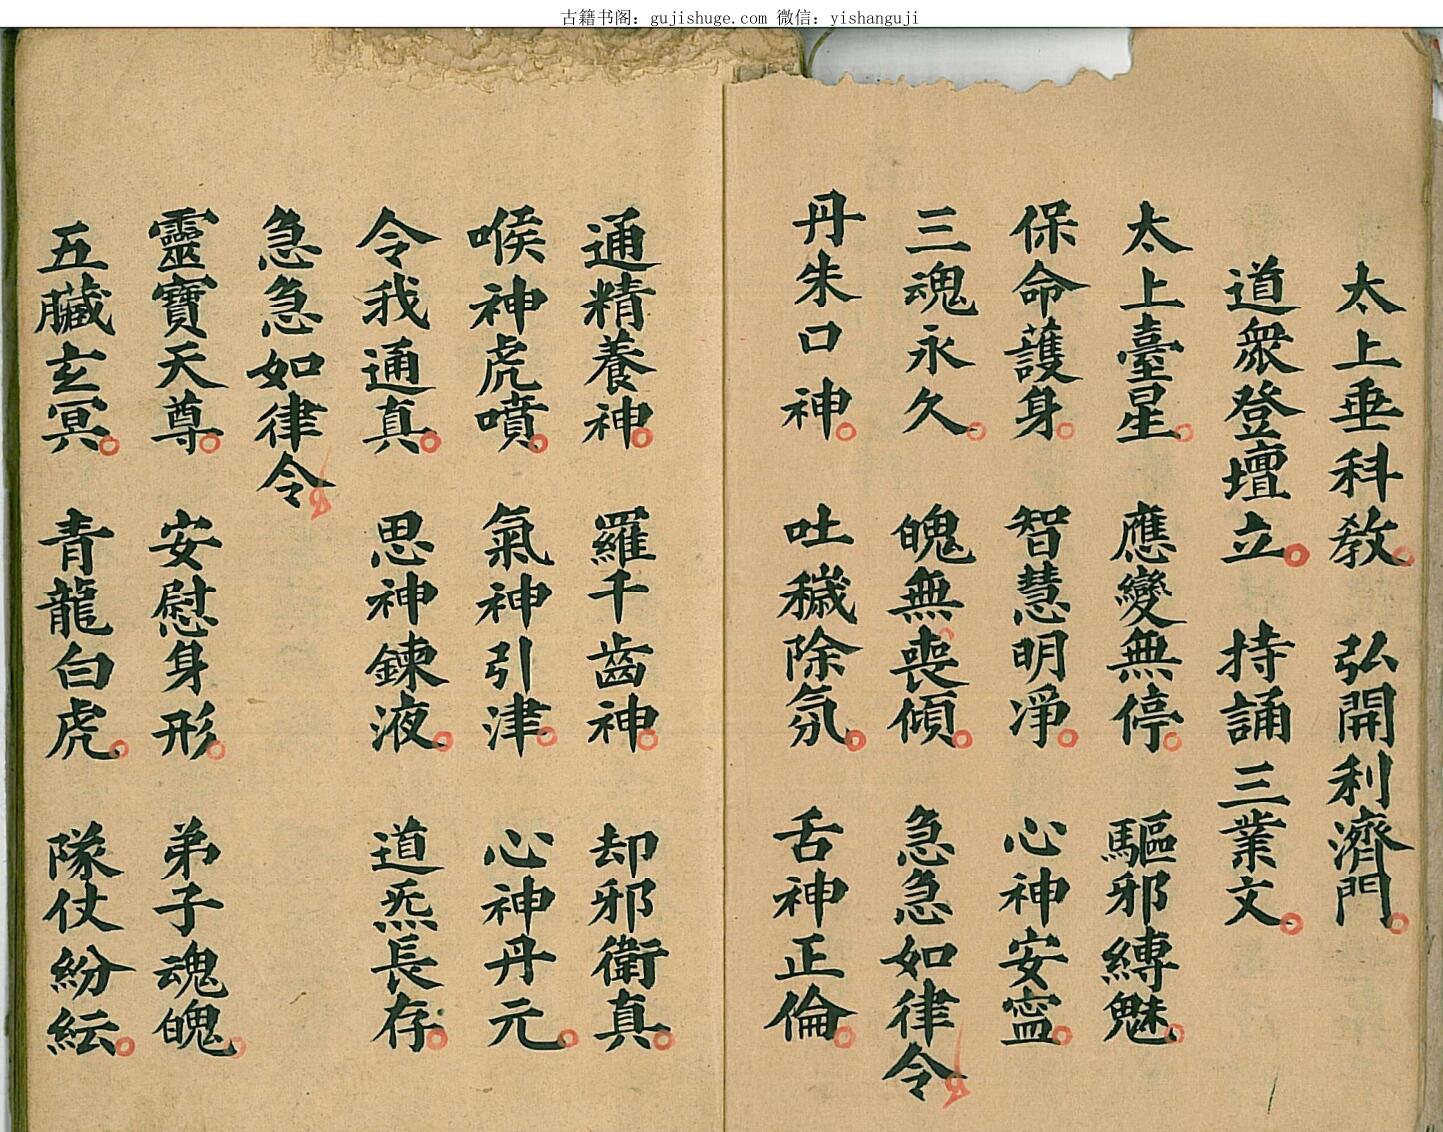 古籍书阁: gujishuge.com 微信: yishanguji
太上垂科教 弘開利濟門
道眾登壇立 持誦三業文
太上臺星 應變無停 驅邪縛魅
保命護身 智慧明淨 心神安寍
三魂永久 魄無喪傾 急急如律令
丹朱口神 吐穢除氛 舌神正倫
通精養神 羅千齒神 却邪衛真
喉神虎噴 氣神引津 心神丹元
令我通真 思神鍊液 道炁長存
急急如律令
靈寶天尊 安慰身形 弟子魂魄
五臟玄冥 青龍白虎 隊仗紛紜